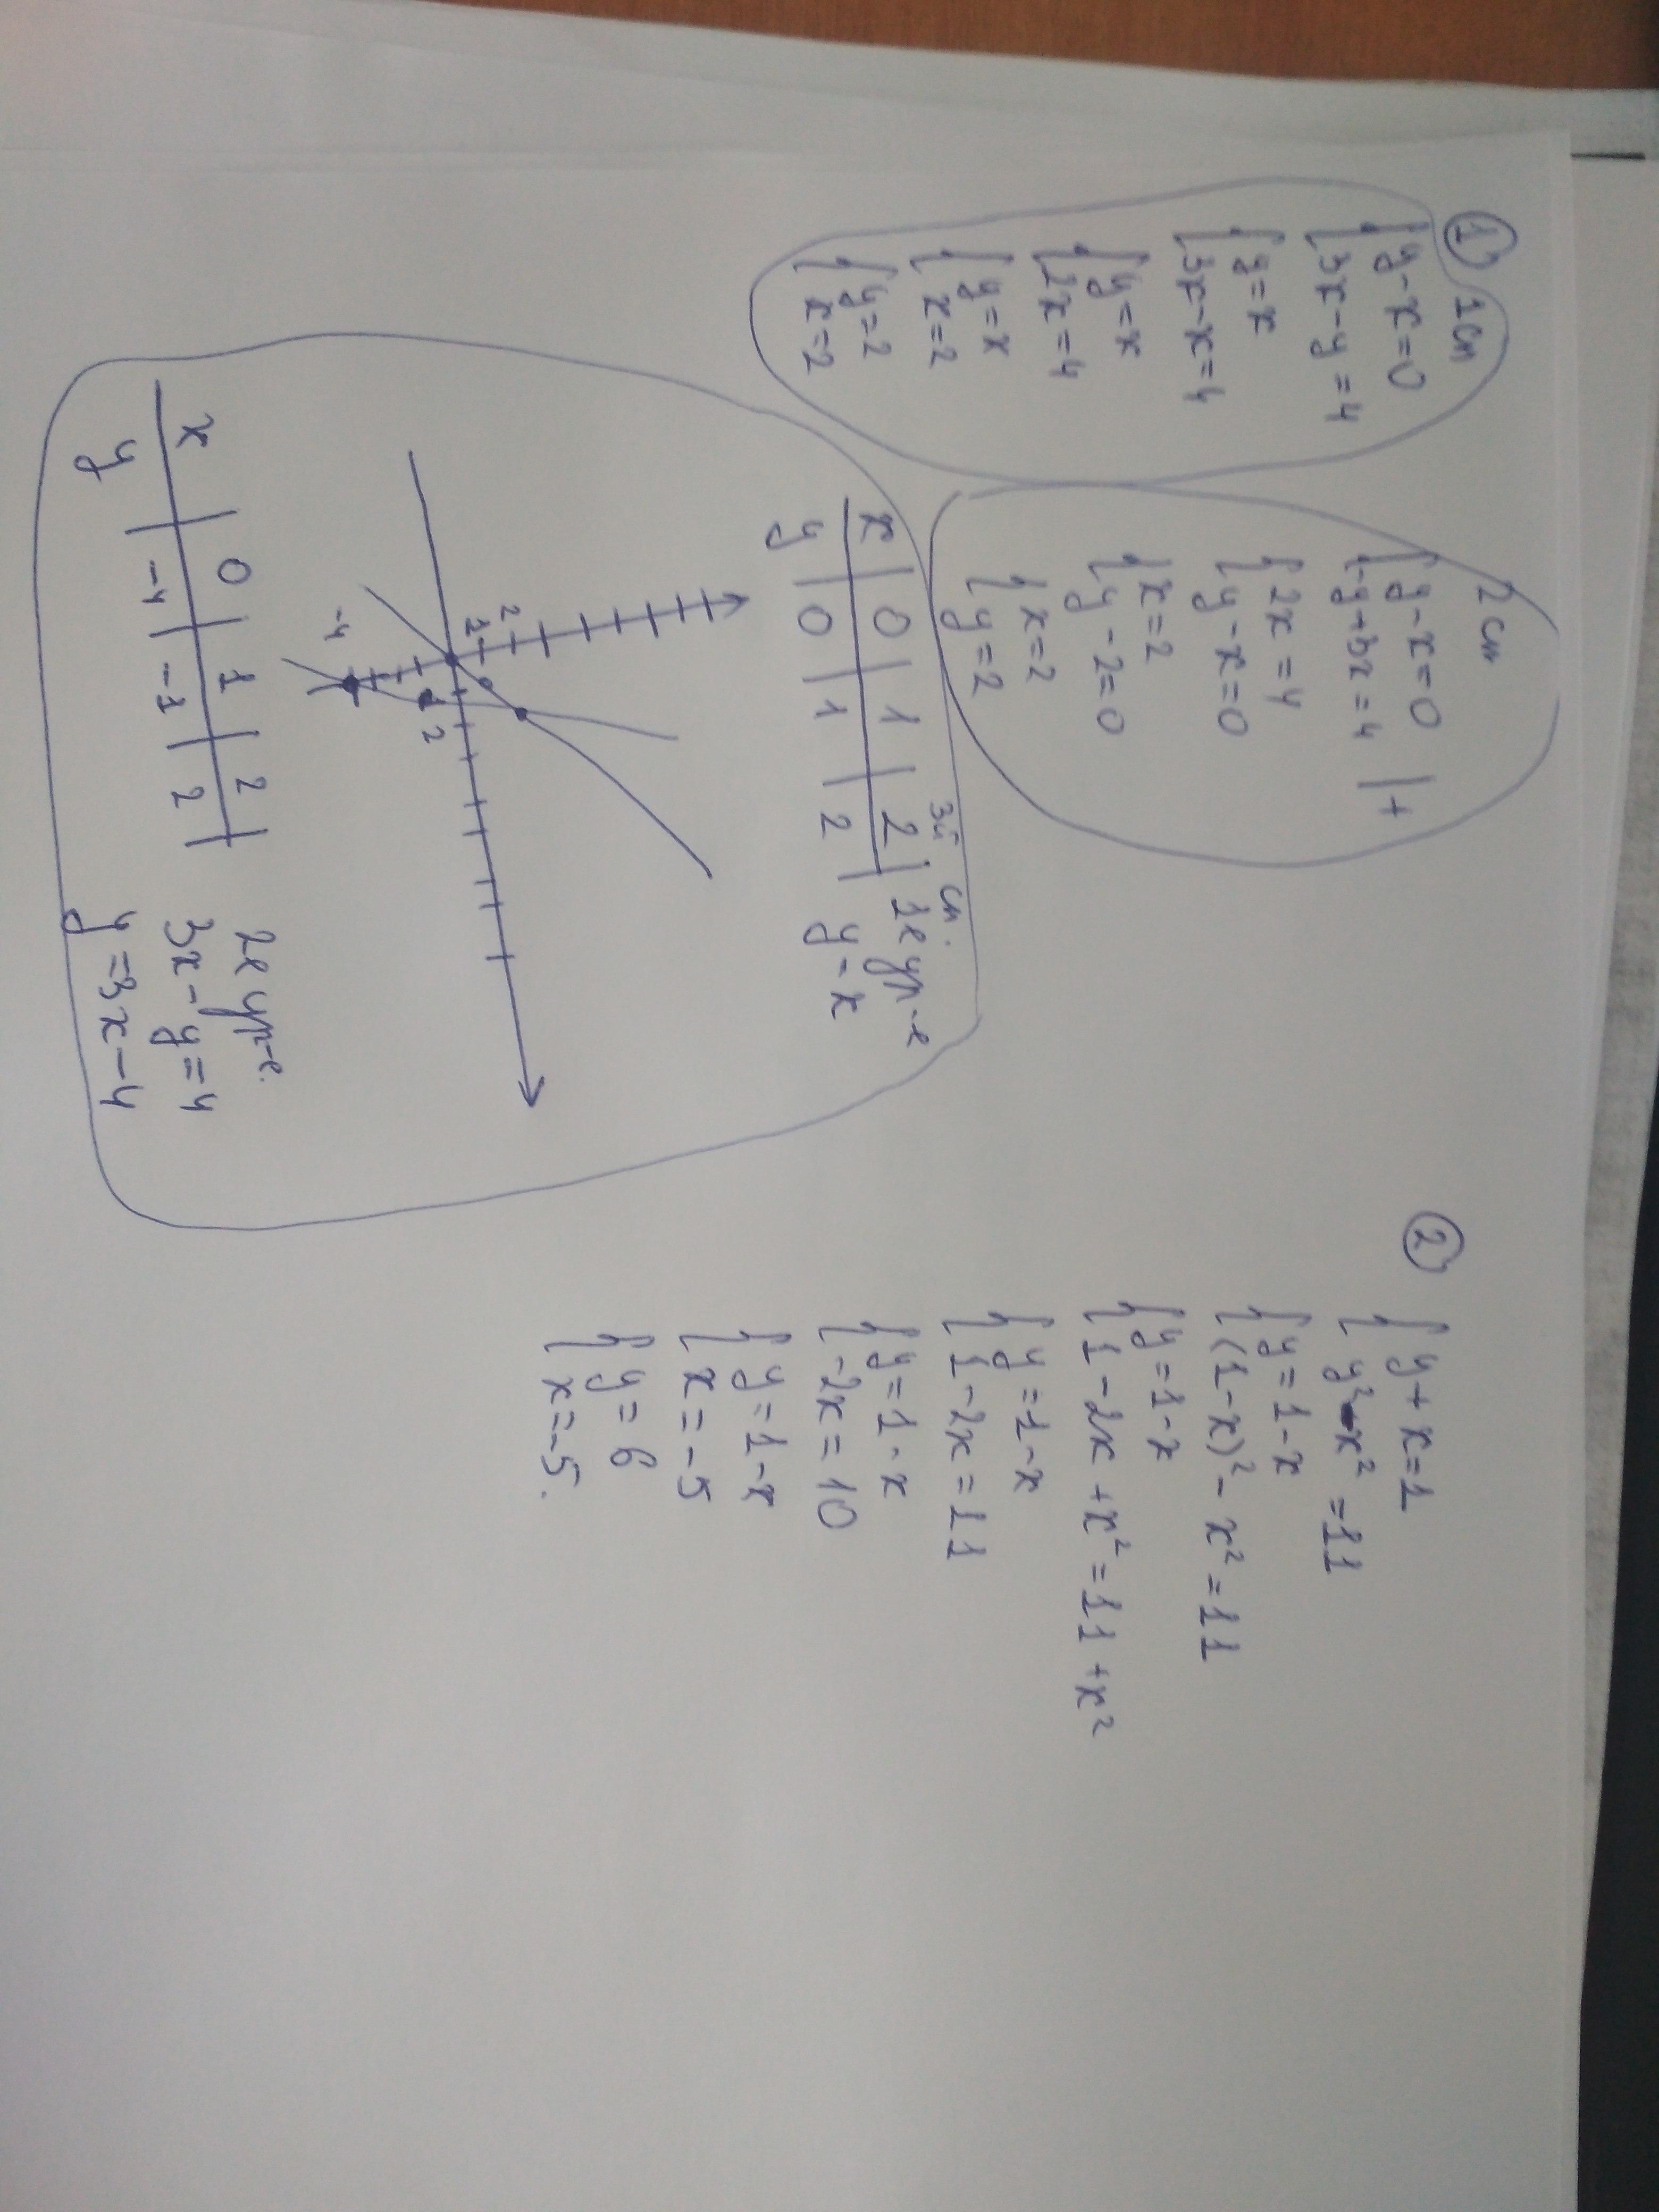 ① 1 сп
{ y-x=0
{ 3x-y=4
{ y=x
{ 3x-x=4
{ y=x
{ 2x=4
{ y=x
{ x=2
{ y=2
{ x=2
2 сп
{ y-x=0
{ -y+3x=4 |+
{ 2x=4
{ y-x=0
{ x=2
{ y-2=0
{ x=2
{ y=2
3й сп.
x | 0 | 1 | 2 | 1е ур-е
y | 0 | 1 | 2 y-x
2
1
2
-4
x | 0 | 1 | 2 |
y | -4 | -1 | 2
2е ур-е.
3x-y=4
y=3x-4
②
{ y+x=1
{ y²-x²=11
{ y=1-x
{ (1-x)²-x²=11
{ y=1-x
{ 1-2x+x²=11+x²
{ y=1-x
{ 1-2x=11
{ y=1-x
{ -2x=10
{ y=1-x
{ x=-5
{ y=6
{ x=-5.